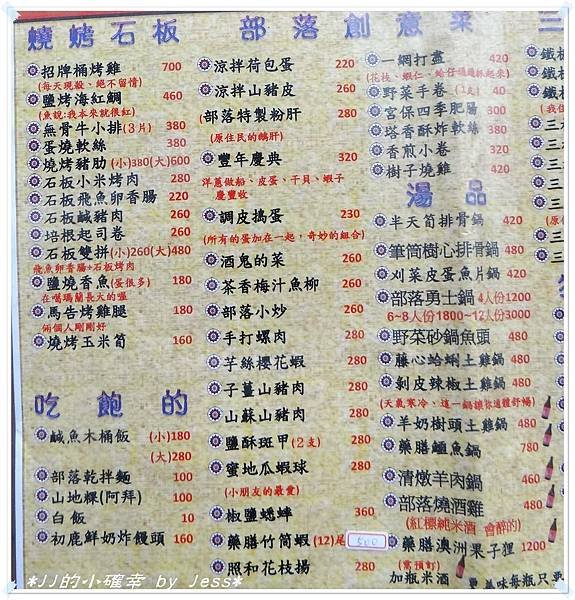 燒烤石板
招牌桶烤雞 700
(每天現殺、絕不留情)
鹽烤海紅鯛 460
(魚說:我本來就很紅)
無骨牛小排(3片) 380
蛋燒軟絲 380
燒烤豬肋(小)380(大)600
石板小米烤肉 280
石板飛魚卵香腸 220
石板鹹豬肉 260
培根起司卷 260
石板雙拼(小)260(大)480
飛魚卵香腸+石板烤肉
鹽燒香魚(蛋很多) 180
在噶瑪蘭長大的喔
馬告烤雞腿 180
倆個人剛剛好
燒烤玉米筍 160
吃飽的
鹹魚木桶飯 (小)180
(大)280
部落乾拌麵 100
山地粿(阿拜) 100
白飯 10
初鹿鮮奶炸饅頭 160
部落創意菜
涼拌荷包蛋 220
涼拌山豬皮 260
部落特製粉肝 280
(原住民的鵝肝)
豐年慶典 320
洋蔥做船、皮蛋、干貝、蝦子
慶豐收
調皮搗蛋 230
(所有的蛋加在一起,奇妙的組合)
酒鬼的菜 260
茶香梅汁魚柳 280
部落小炒 260
手打螺肉 280
芋絲櫻花蝦 280
子薑山豬肉 280
山蘇山豬肉 280
鹽酥斑甲(2支) 280
蜜地瓜蝦球 280
(小朋友的最愛)
椒鹽蟋蟀 360
藥膳竹筒蝦(12)尾 500
照和花枝揚 280
一網打盡 420
野菜手卷 (1支) 40
宮保四季肥腸 300
塔香酥炸軟絲 380
香煎小卷 320
樹子燒雞 420
湯品
半天筍排骨鍋 420
筆筒樹心排骨鍋 480
刈菜皮蛋魚片鍋 420
部落勇士鍋 4人份1200
6~8人份1800~12人份3000
野菜砂鍋魚頭 480
藤心蛤蜊土雞鍋 480
剝皮辣椒土雞鍋 480
(天氣寒冷、這一鍋讓你通體舒暢)
羊奶樹頭土雞鍋 480
藥膳鱸魚鍋 780
清燉羊肉鍋 460
部落燒酒雞 480
(紅標純米酒 會醉的)
藥膳澳洲果子狸 1200
(需預訂)
加瓶米酒
三
鐵板
鐵板
*JJ的小確幸 by Jess*